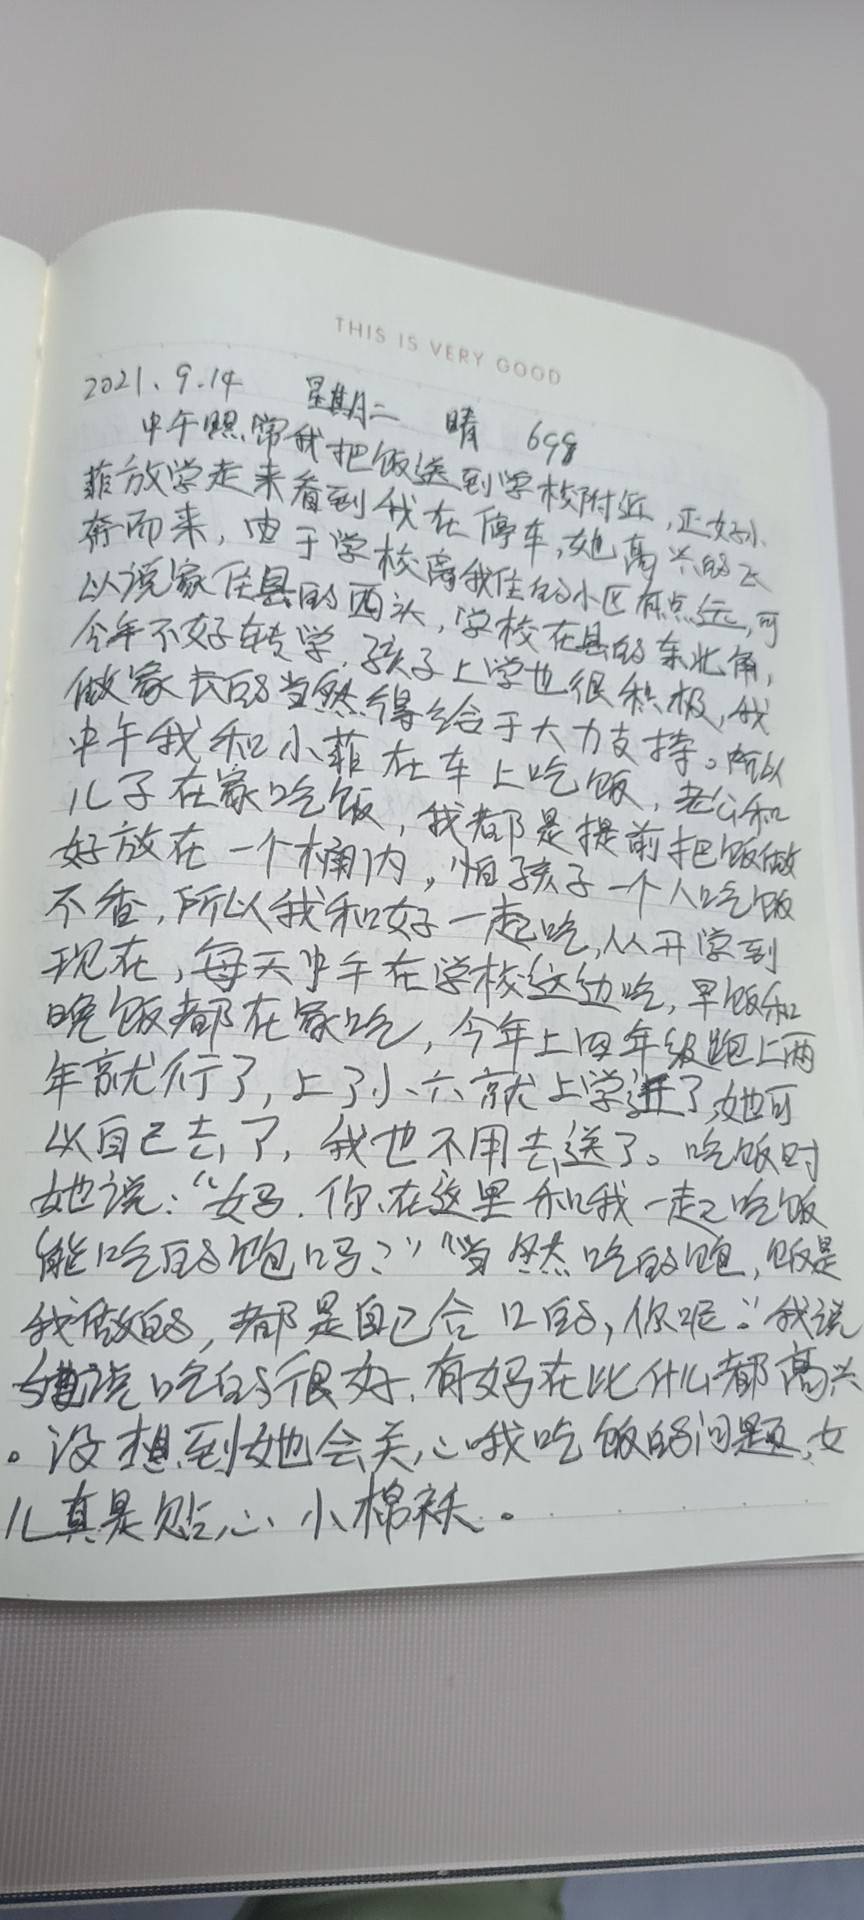 THIS IS VERY GOOD
2021.9.14 星期二 晴 698
中午照常我把饭送到学校附近,正好小
菲放学走来看到我在停车,她高兴的飞
奔而来,由于学校离我住的小区有点远,可
以说家住县的西头,学校在县的东北角,
今年不好转学,孩子上学也很积极,我
做家长的当然得给于大力支持。所以
中午我和小菲在车上吃饭,老公和
儿子在家吃饭,我都是提前把饭做
好放在一个桶内,怕孩子一个人吃饭
不香,所以我和好一起吃,从开学到
现在,每天中午在学校这边吃,早饭和
晚饭都在家吃,今年上四年级跑上两
年就行了,上了小六就上学近了,她可
以自己去了,我也不用去送了。吃饭时
她说:“妈.你在这里和我一起吃饭
能吃的饱吗?”“当然吃的饱,饭是
我做的,都是自己合口的,你呢”我说
她说吃的很好,有妈在比什么都高兴
。没想到她会关心我吃饭的问题,女
儿真是贴心小棉袄。